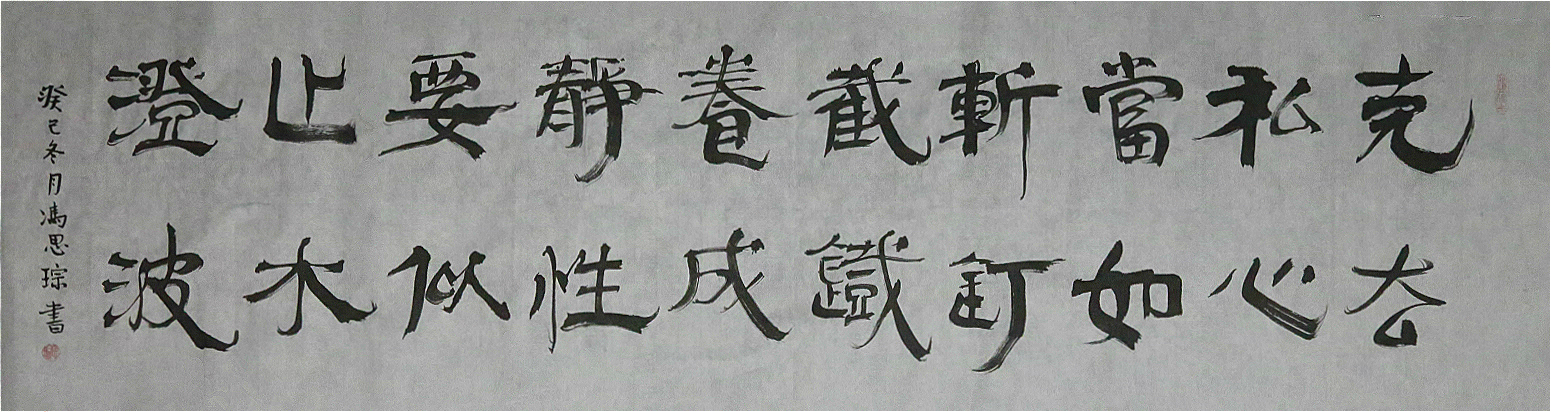 克去
私心
當如
斬釘
截鐵
養成
靜性
要似
止水
澄波
癸巳冬月馮思琮書